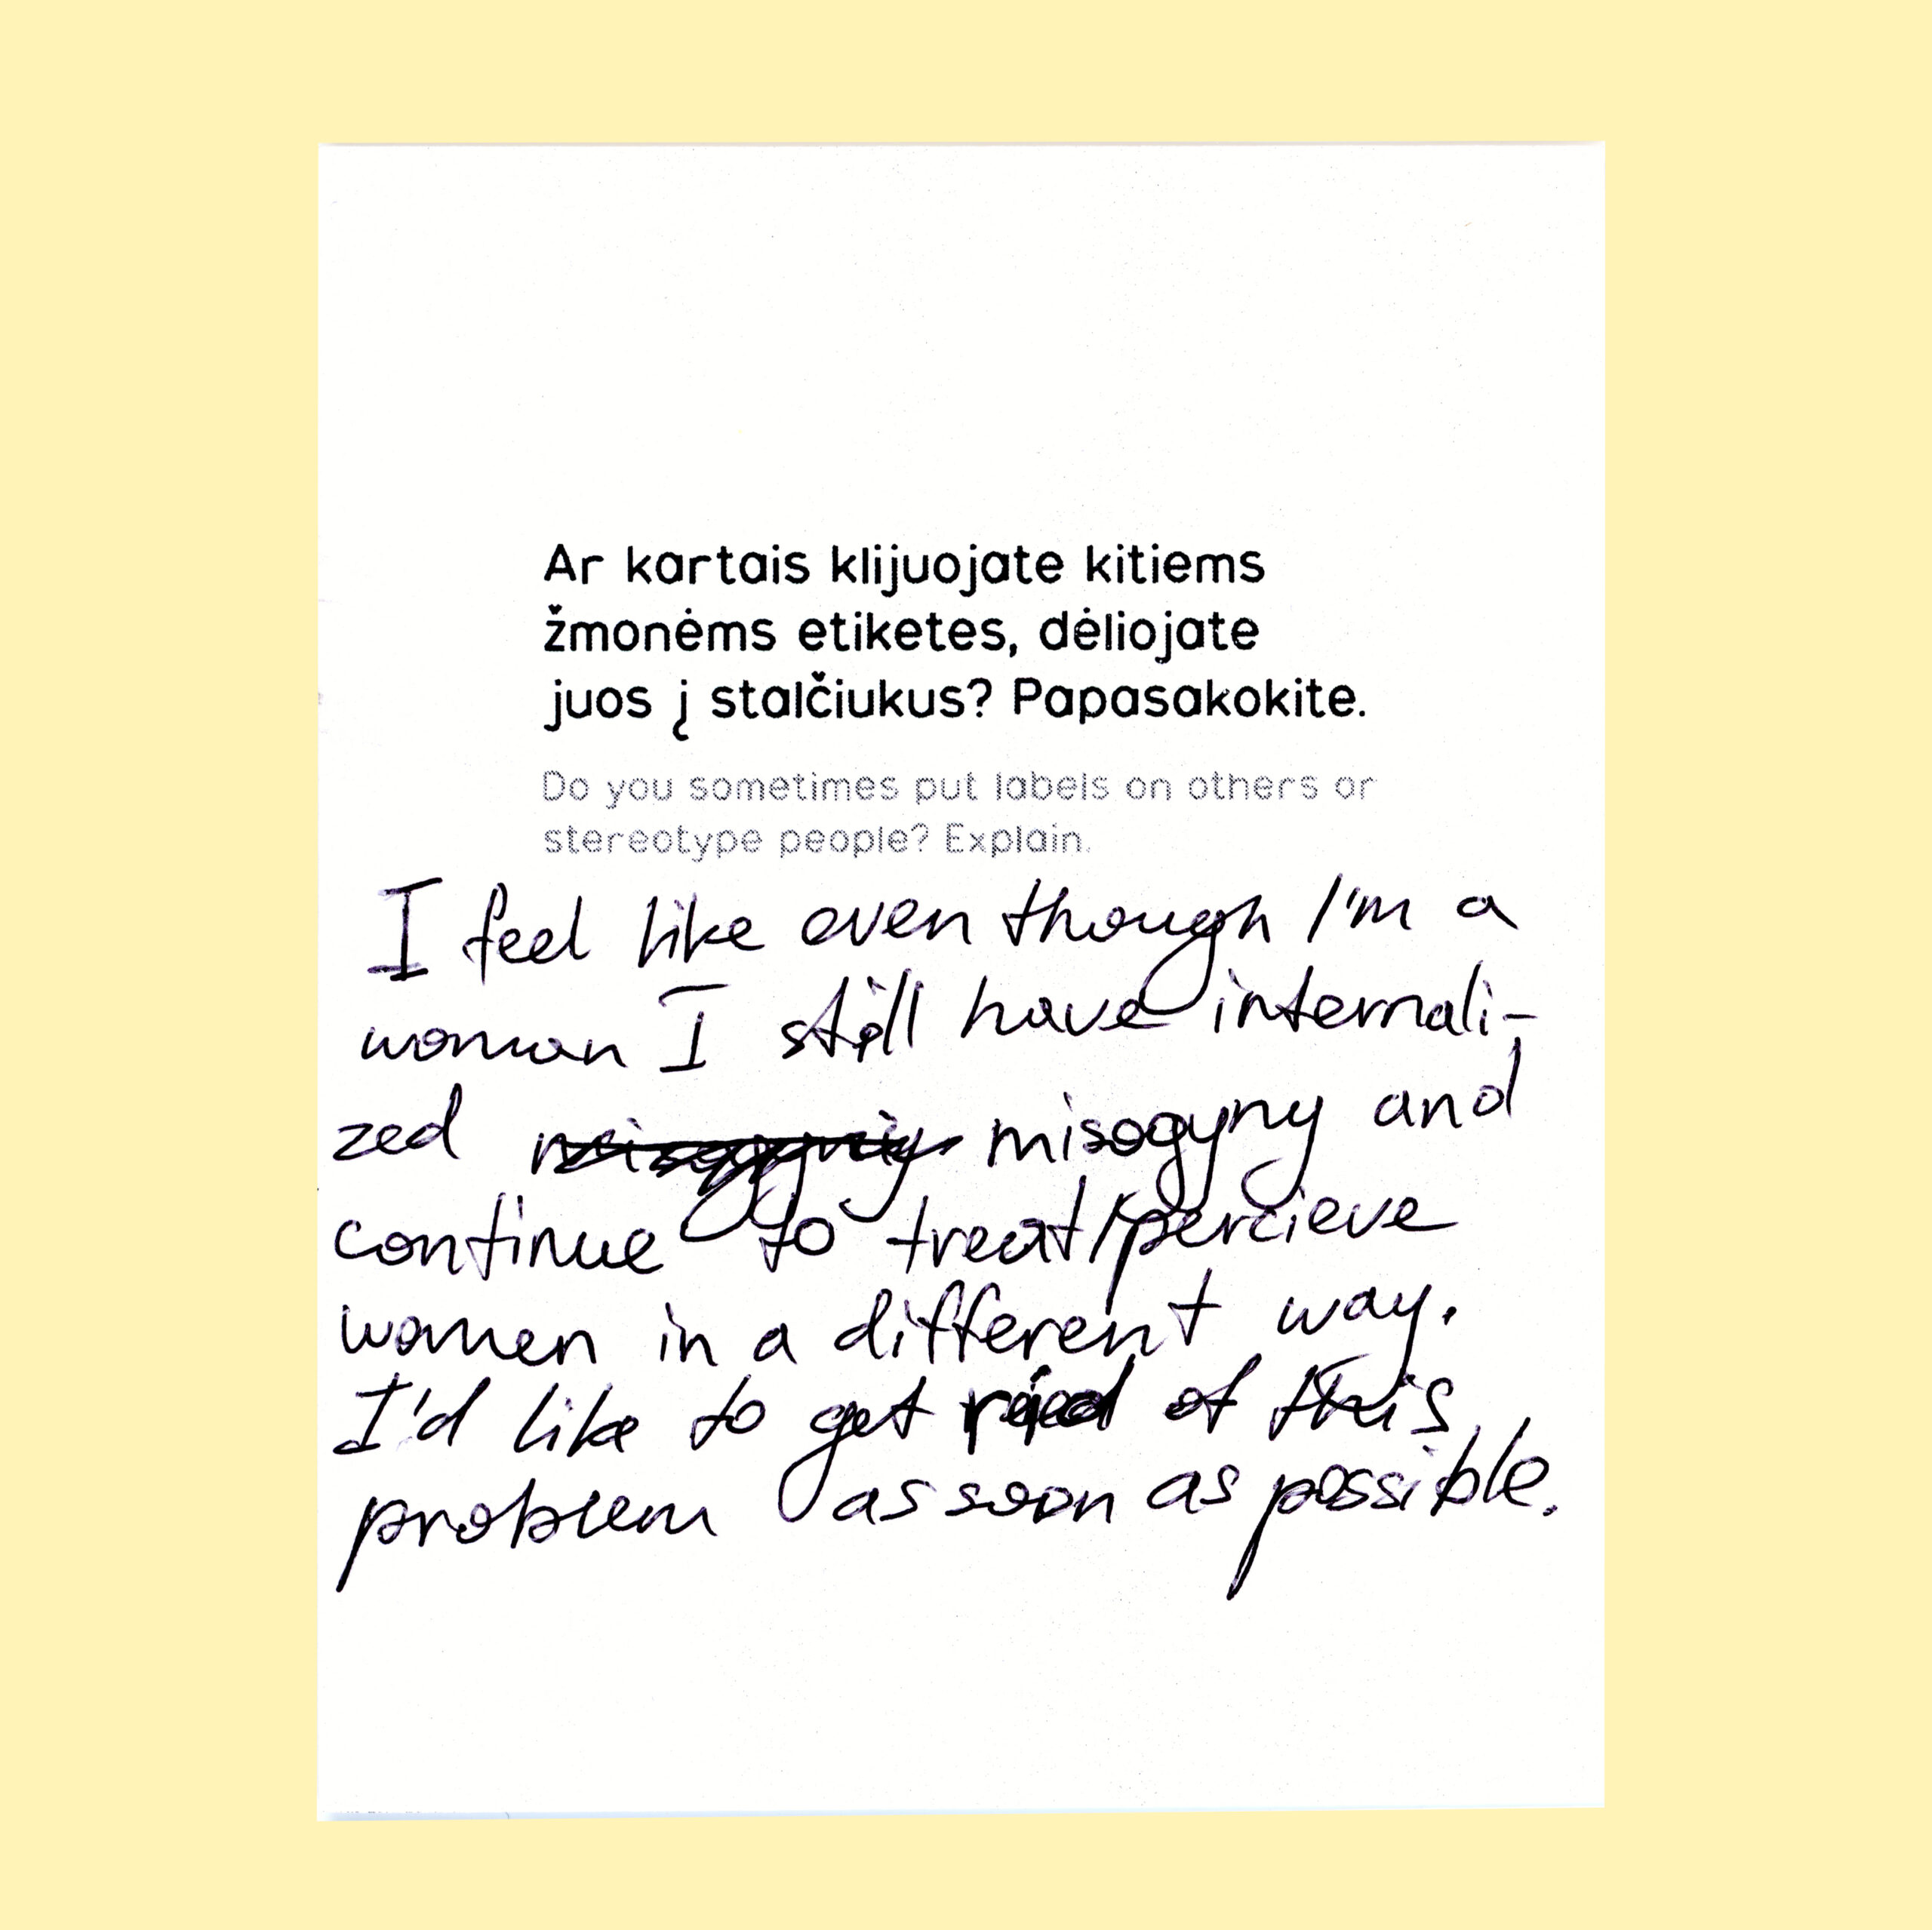 Ar kartais klijuojate kitiems
žmonėms etiketes, dėliojate
juos į stalčiukus? Papasakokite.
Do you sometimes put labels on others or
stereotype people? Explain.
I feel like even though I'm a
woman I still have internali-
zed misogyny and
continue to treat/percieve
women in a different way.
I'd like to get rid of this
problem as soon as possible.